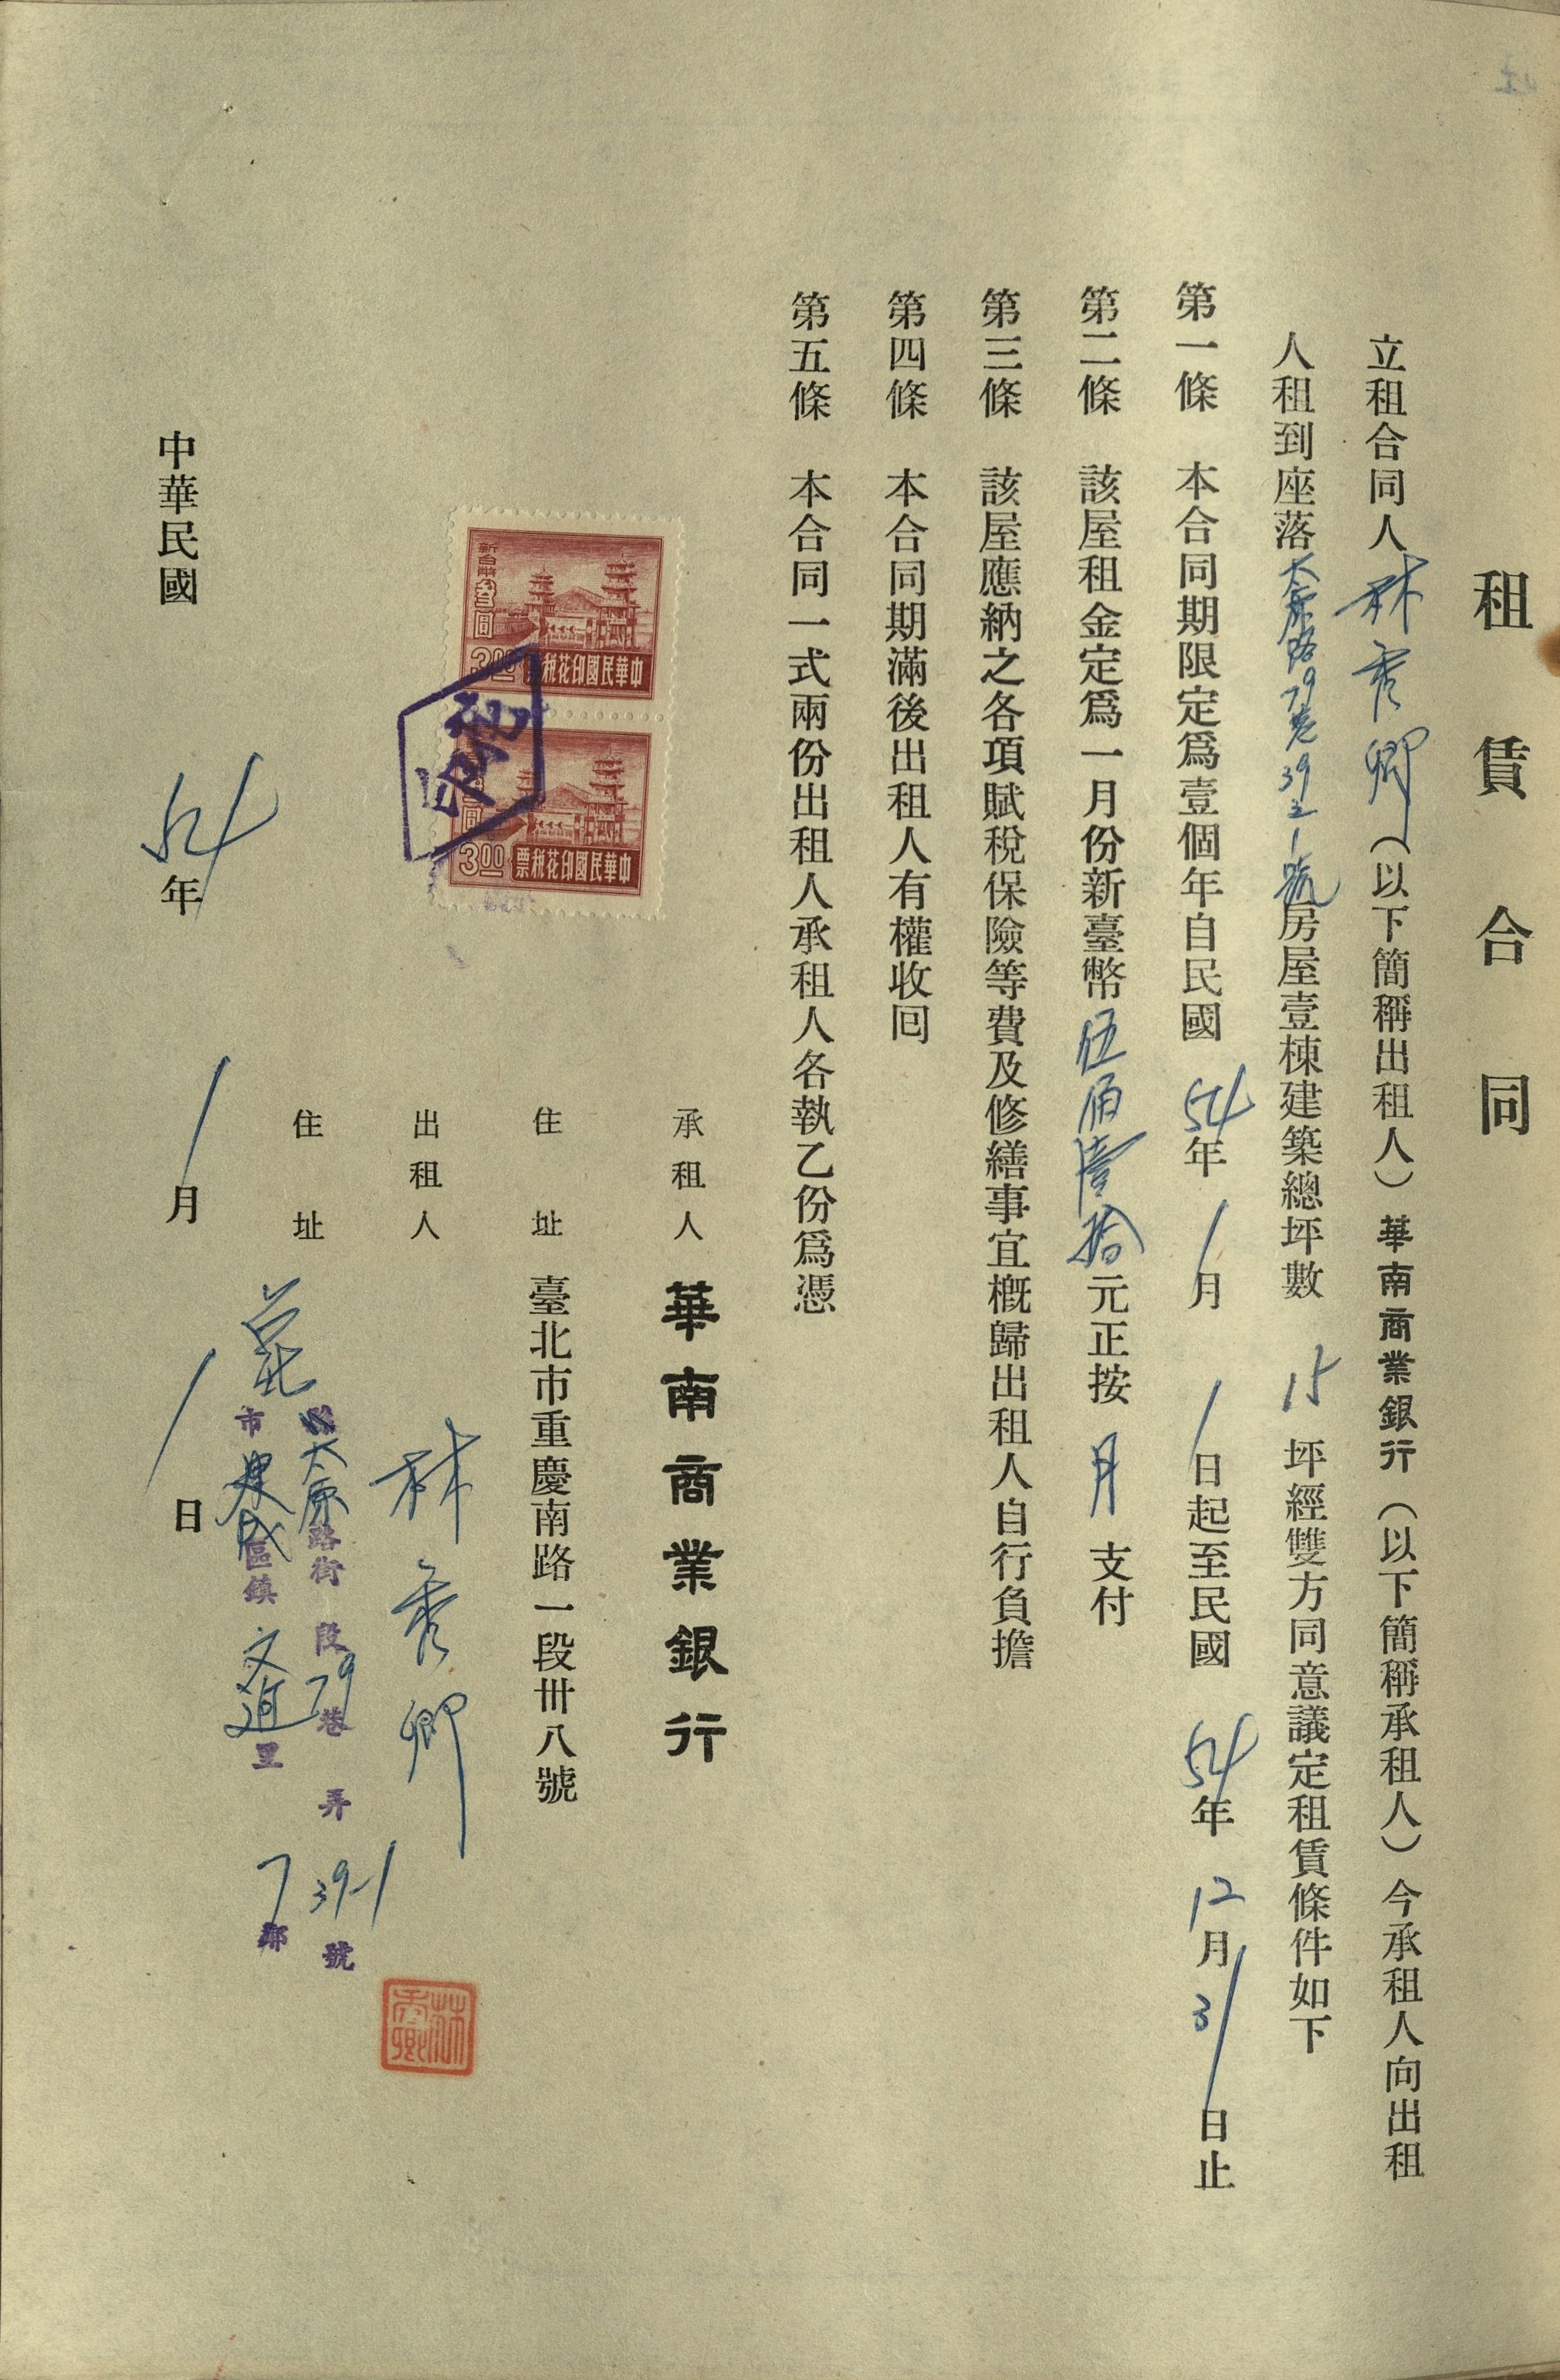 租賃合同
立租合同人林秀卿（以下簡稱出租人）華南商業銀行（以下簡稱承租人）今承租人向出租
人租到座落太原路79巷39之1號房屋壹棟建築總坪數15坪經雙方同意議定租賃條件如下
第一條 本合同期限定為壹個年自民國54年1月1日起至民國54年12月31日止
第二條 該屋租金定為一月份新臺幣伍佰壹拾元正按月支付
第三條 該屋應納之各項賦稅保險等費及修繕事宜概歸出租人自行負擔
第四條 本合同期滿後出租人有權收囘
第五條 本合同一式兩份出租人承租人各執乙份為憑
新台幣叁圓
3.00
中華民國印花稅票
圓
3.00
中華民國印花稅票
承租人 華南商業銀行
住址 臺北市重慶南路一段卅八號
出租人 林秀卿
林秀卿
住址
太原路街 段79巷 弄39-1號
市建成區鎮 里7鄰
中華民國54年1月1日